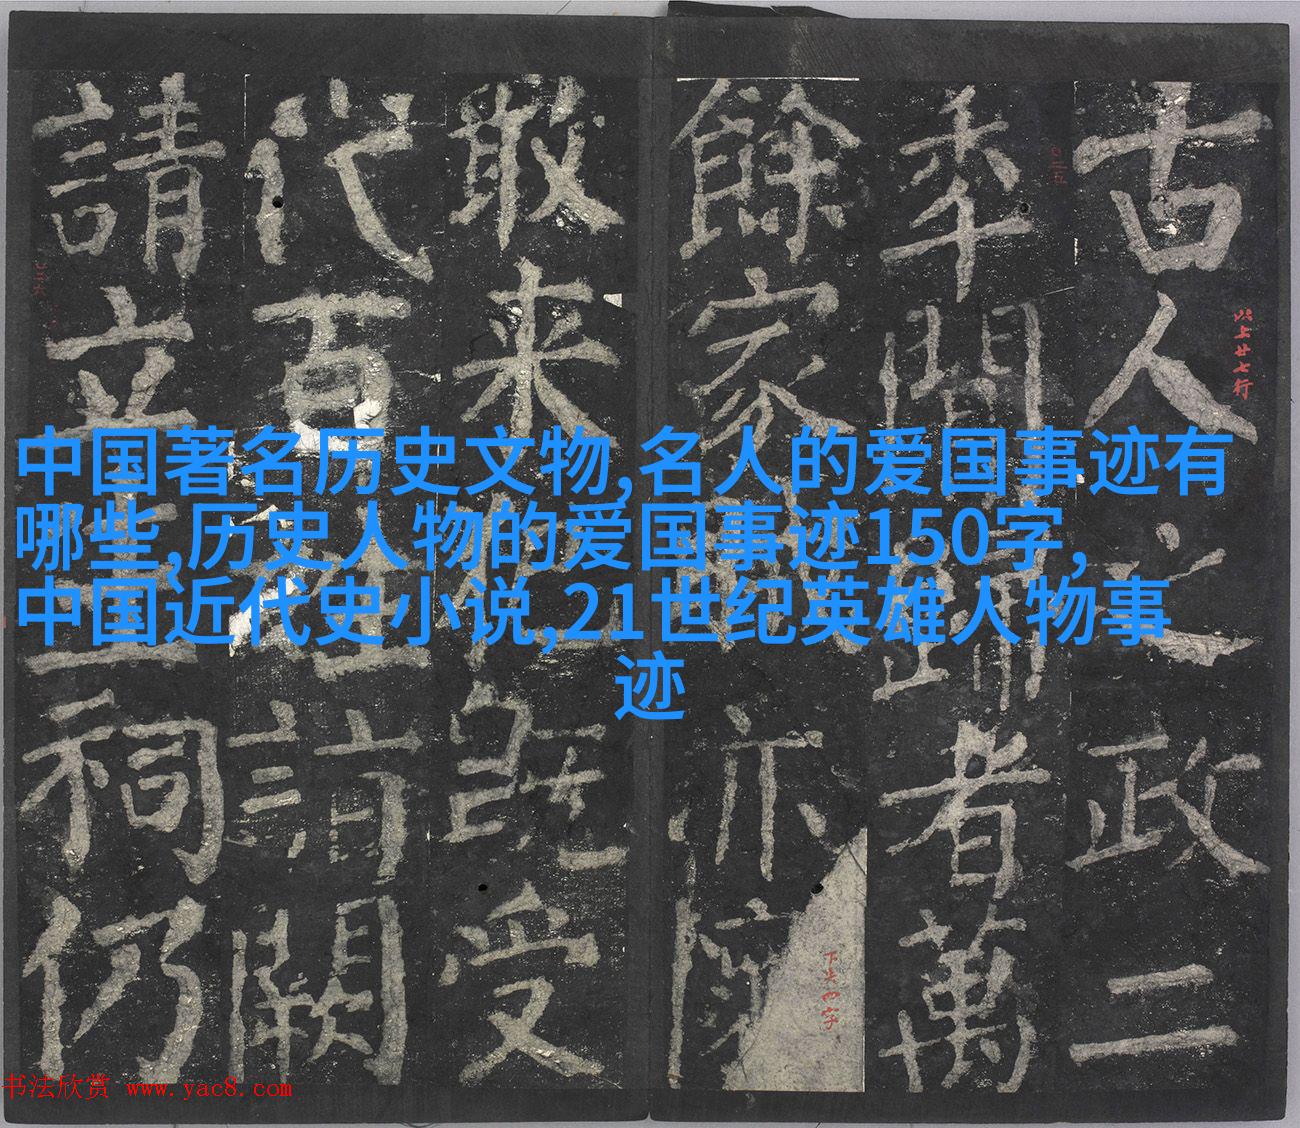 中国著名历史文物,名人的爱国事迹有
哪些,历史人物的爱国事迹150字,
中国近代史小说,21世纪英雄人物事
迹
古人之政二
年間者萬
餘家亦
敢来既受
代百詣闕
請立祠仍
以上廿七行
下失四字
书法欣赏 www.yac8.com